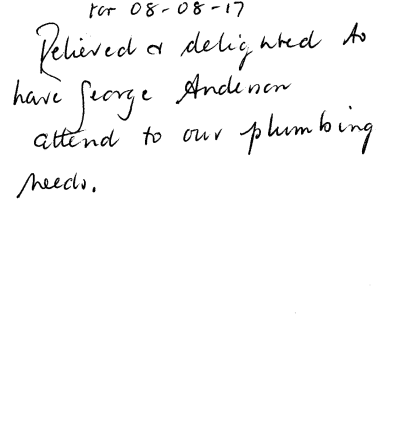 for 08-08-17
Relieved & delighted to
have George Anderson
attend to our plumbing
needs.